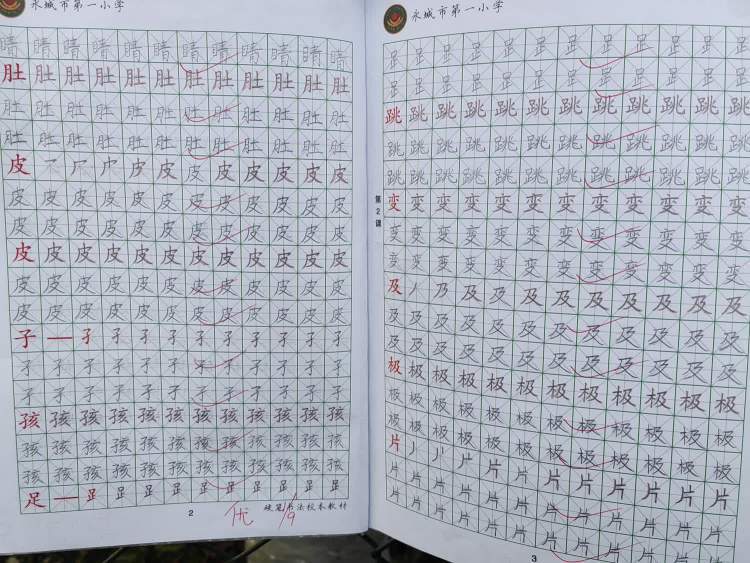 永城市第一小学
睛睛睛睛睛睛睛睛睛睛睛睛
肚肚肚肚肚肚肚肚肚肚肚肚
肚肚肚肚肚肚肚肚肚肚肚肚
肚肚肚肚肚肚肚肚肚肚肚肚
皮皮皮皮皮皮皮皮皮
皮皮皮皮皮皮皮皮皮皮皮皮
皮皮皮皮皮皮皮皮皮皮皮皮
皮皮皮皮皮皮皮皮皮皮皮皮
皮皮皮皮皮皮皮皮皮皮皮皮
皮皮皮皮皮皮皮皮皮皮皮皮
孑一孑孑孑孑孑孑孑孑孑孑
孑孑孑孑孑孑孑孑孑孑孑孑
孑孑孑孑孑孑孑孑孑孑孑孑
孩孩孩孩孩孩孩孩孩孩孩孩
孩孩孩孩孩孩孩孩孩孩孩孩
孩孩孩孩孩孩孩孩孩孩孩孩
足一⻊⻊⻊⻊⻊⻊⻊⻊⻊⻊
2
优
1/9
硬笔书法校本教材
永城市第一小学
⻊⻊⻊⻊⻊⻊⻊⻊⻊⻊⻊⻊
⻊⻊⻊⻊⻊⻊⻊⻊⻊⻊⻊⻊
跳跳跳跳跳跳跳跳跳跳跳跳
跳跳跳跳跳跳跳跳跳跳跳跳
跳跳跳跳跳跳跳跳跳跳跳跳
第2课
变变变变变变变变变变变变
变变变变变变变变变变变变
变变变变变变变变变变变变
及丿乃及及及及及及及及及
及及及及及及及及及及及及
及及及及及及及及及及及及
极极极极极极极极极极极极
极极极极极极极极极极极极
极极极极极极极极极极极极
片片片片片片片片片片
片片片片片片片片片片片片
片片片片片片片片片片片片
3